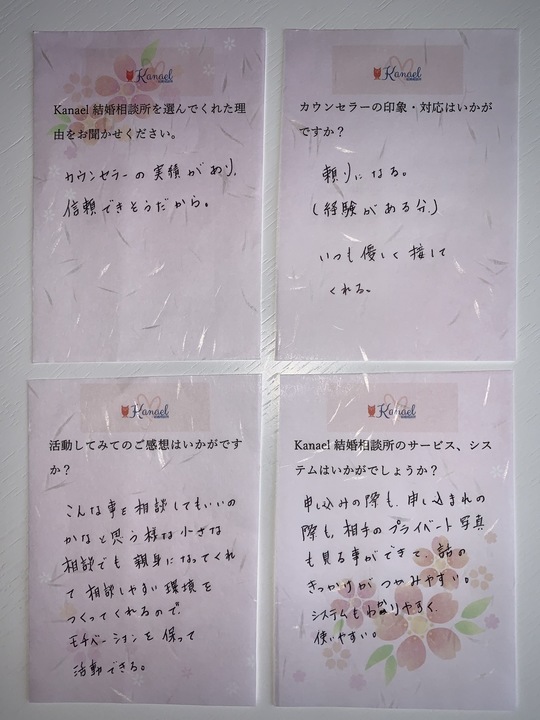 Kanael
Kanael 結婚相談所を選んでくれた理
由をお聞かせください。
カウンセラーの実績があり、
信頼できそうだから。
Kanael
カウンセラーの印象・対応はいかが
ですか？
頼りになる。
(経験がある分)
いつも優しく接して
くれる。
Kanael
活動してみてのご感想はいかがです
か？
こんな事を相談してもいいの
かなと思う様な小さな
相談でも親身になってくれ
て相談しやすい環境を
つくってくれるので、
モチベーションを保って
活動できる。
Kanael
Kanael 結婚相談所のサービス、シス
テムはいかがでしょうか？
申し込みの際も、申し込まれの
際も、相手のプライベート写真
も見る事ができて、話の
きっかけがつかみやすい。
システムもわかりやすく、
使いやすい。